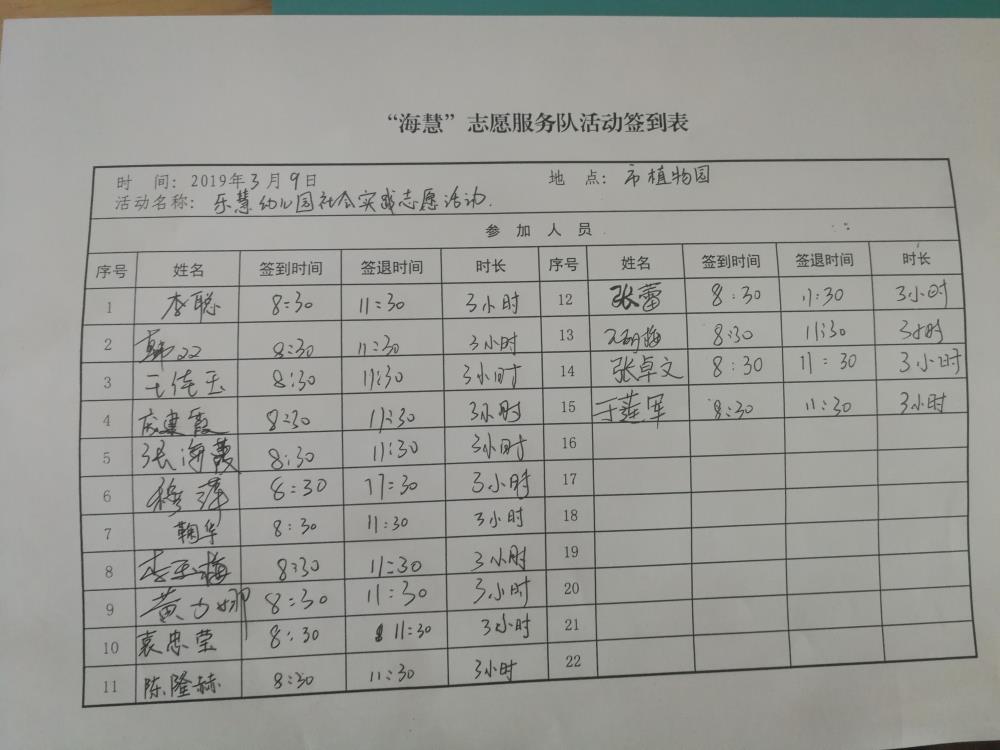 “海慧”志愿服务队活动签到表
时 间：2019年3月9日 地 点：市植物园
活动名称：乐慧幼儿园社会实践志愿活动.
参 加 人 员
序号 姓名 签到时间 签退时间 时长 序号 姓名 签到时间 签退时间 时长
1 李聪 8:30 11:30 3小时 12 张蕾 8:30 11:30 3小时
2 韩双 8:30 11:30 3小时 13 8:30 11:30 3小时
3 王佳玉 8:30 11:30 3小时 14 张卓文 8:30 11:30 3小时
4 8:30 11:30 3小时 15 于莲军 8:30 11:30 3小时
5 张海霞 8:30 11:30 3小时 16
6 穆萍 8:30 11:30 3小时 17
7 鞠华 8:30 11:30 3小时 18
8 8:30 11:30 3小时 19
9 8:30 11:30 3小时 20
10 袁忠莹 8:30 11:30 3小时 21
11 陈隆赫 8:30 11:30 3小时 22